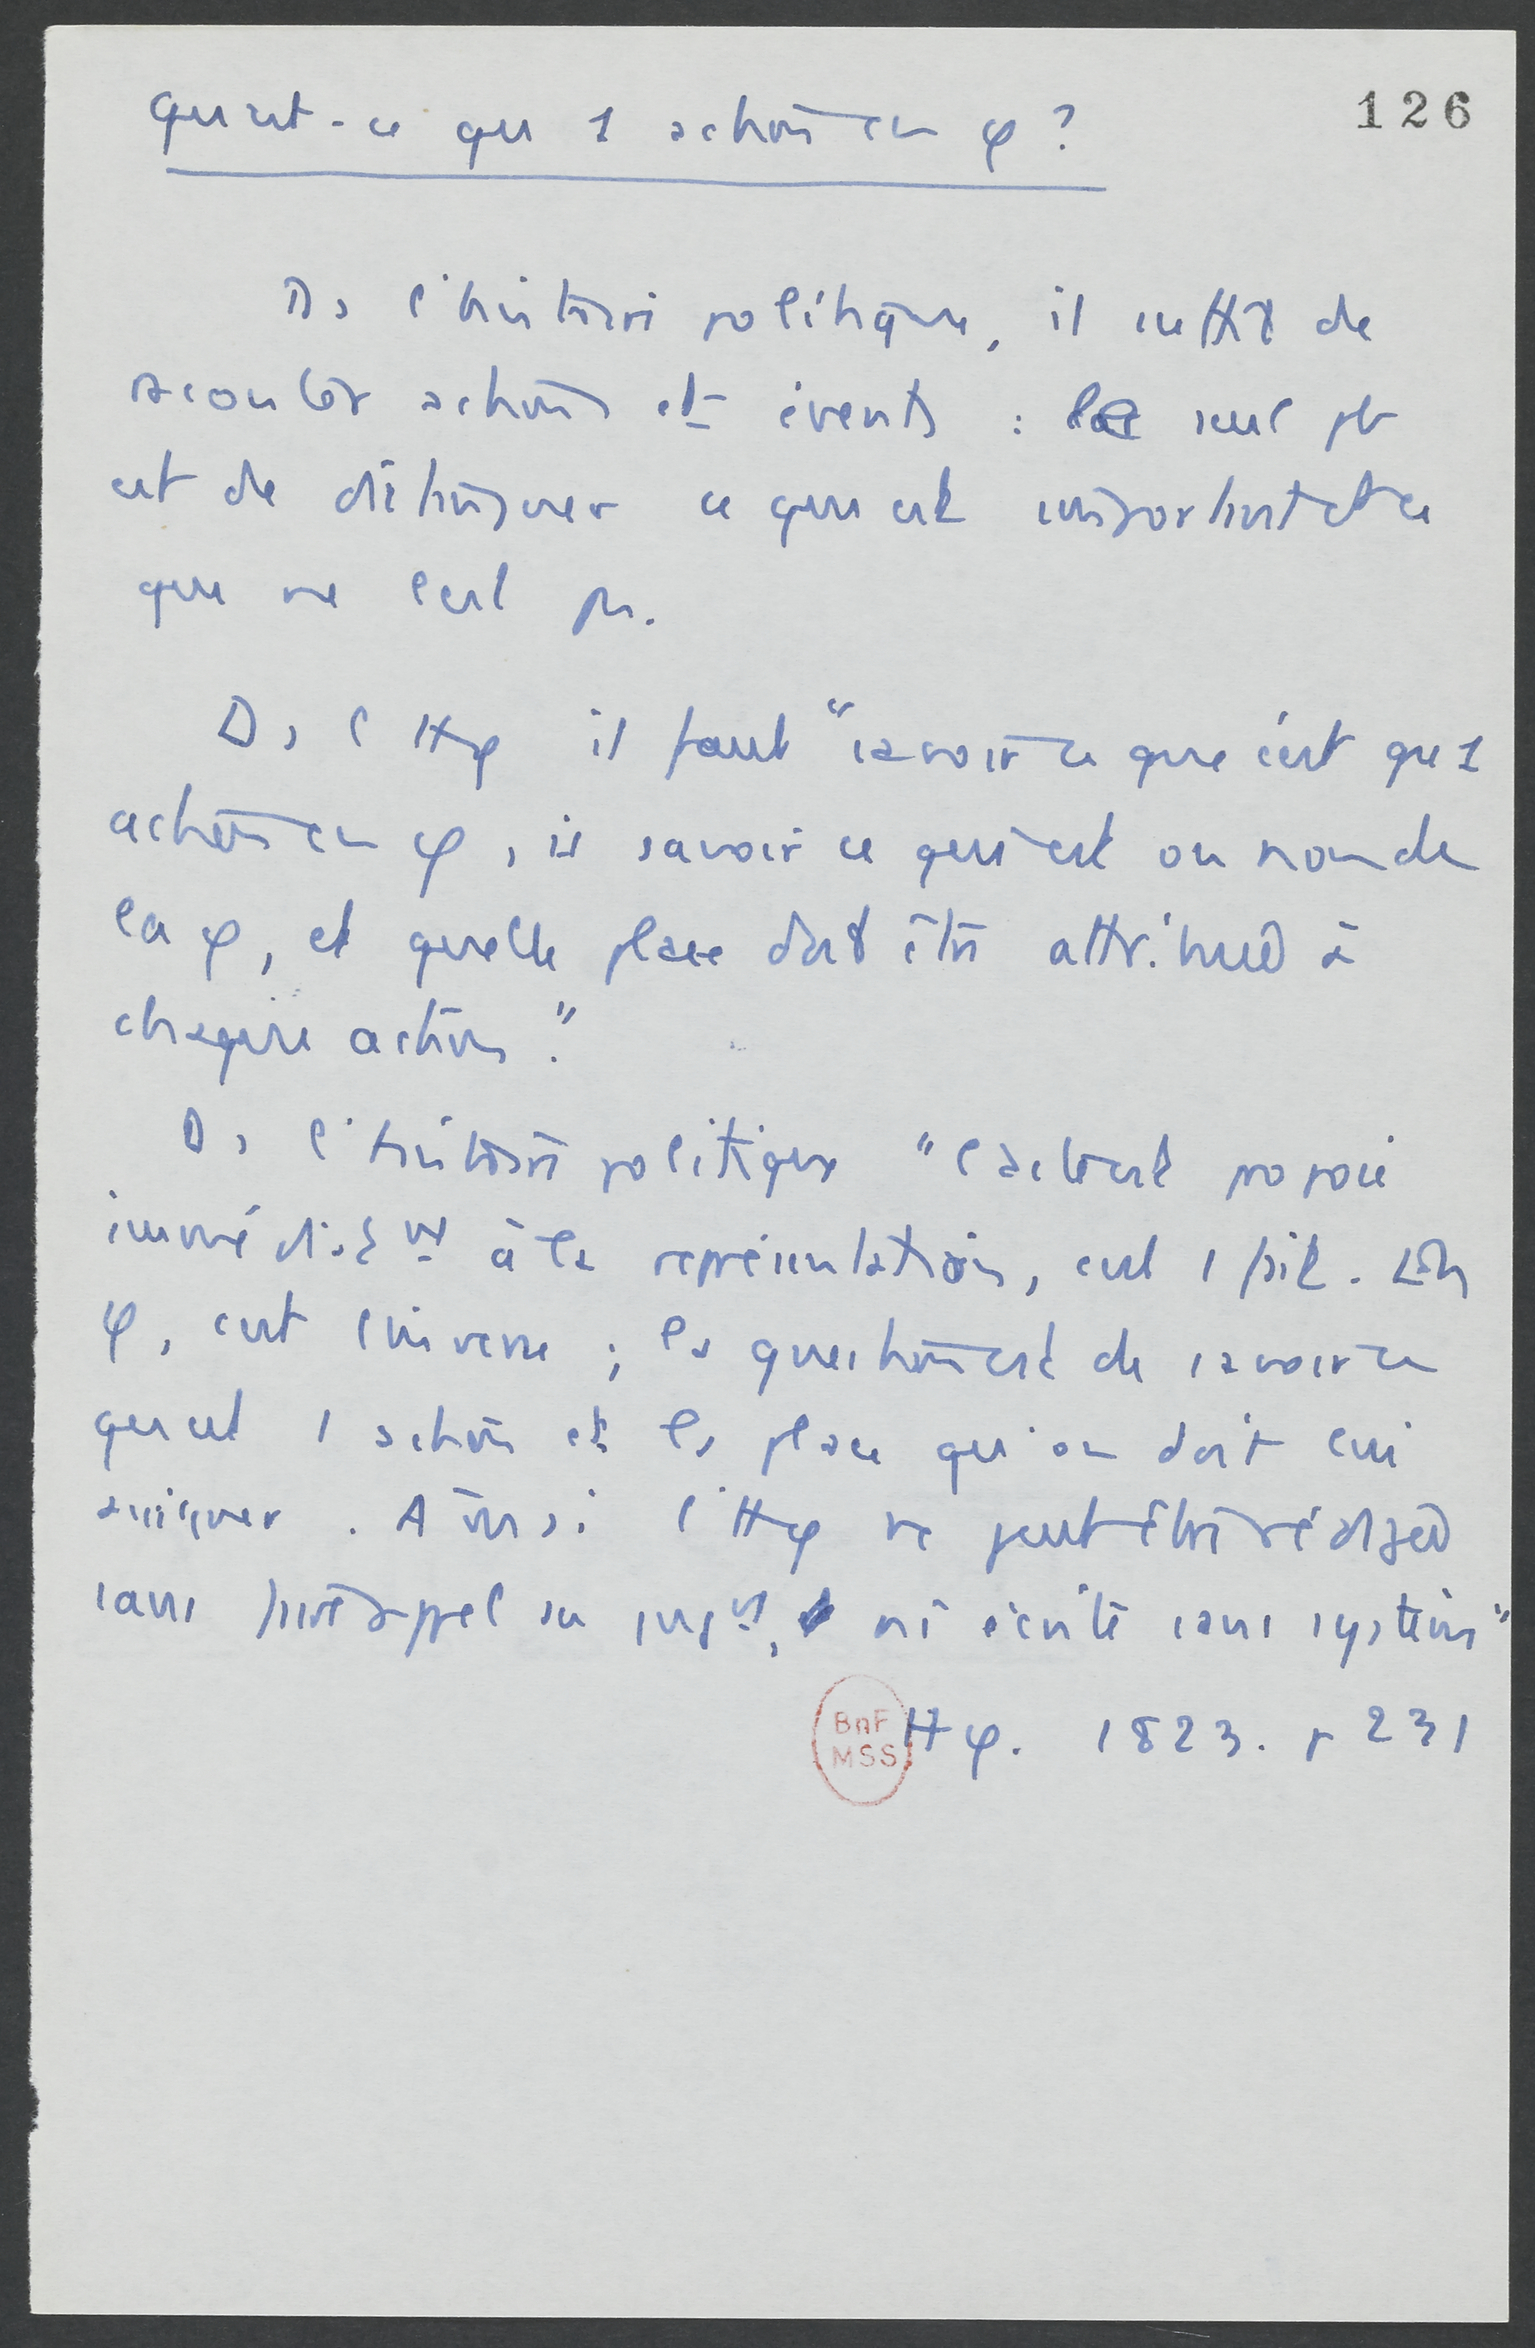 126
Qu'est-ce qu'1 action en φ ?
Ds l'histoire politique, il suffit de
raconter actions et événts : le seul pb
est de distinguer ce qui est important et ce
qui ne l'est pas.
Ds l'Hφ il faut "savoir ce que c'est qu'1
action en φ, is savoir ce qui est ou non de
la φ, et quelle place doit être attribuée à
chaque action."
Ds l'histoire politique "l'acteur est
immédiatt à la représentation, c'est 1 fait. En
φ, c'est l'inverse ; la question est de savoir ce
qu'est 1 action et la place qu'on doit lui
assigner. Ainsi l'Hφ ne peut être rédigée
sans faire appel au jugt, ni écrite sans système"
Hφ. 1823. p 231
BnF
MSS